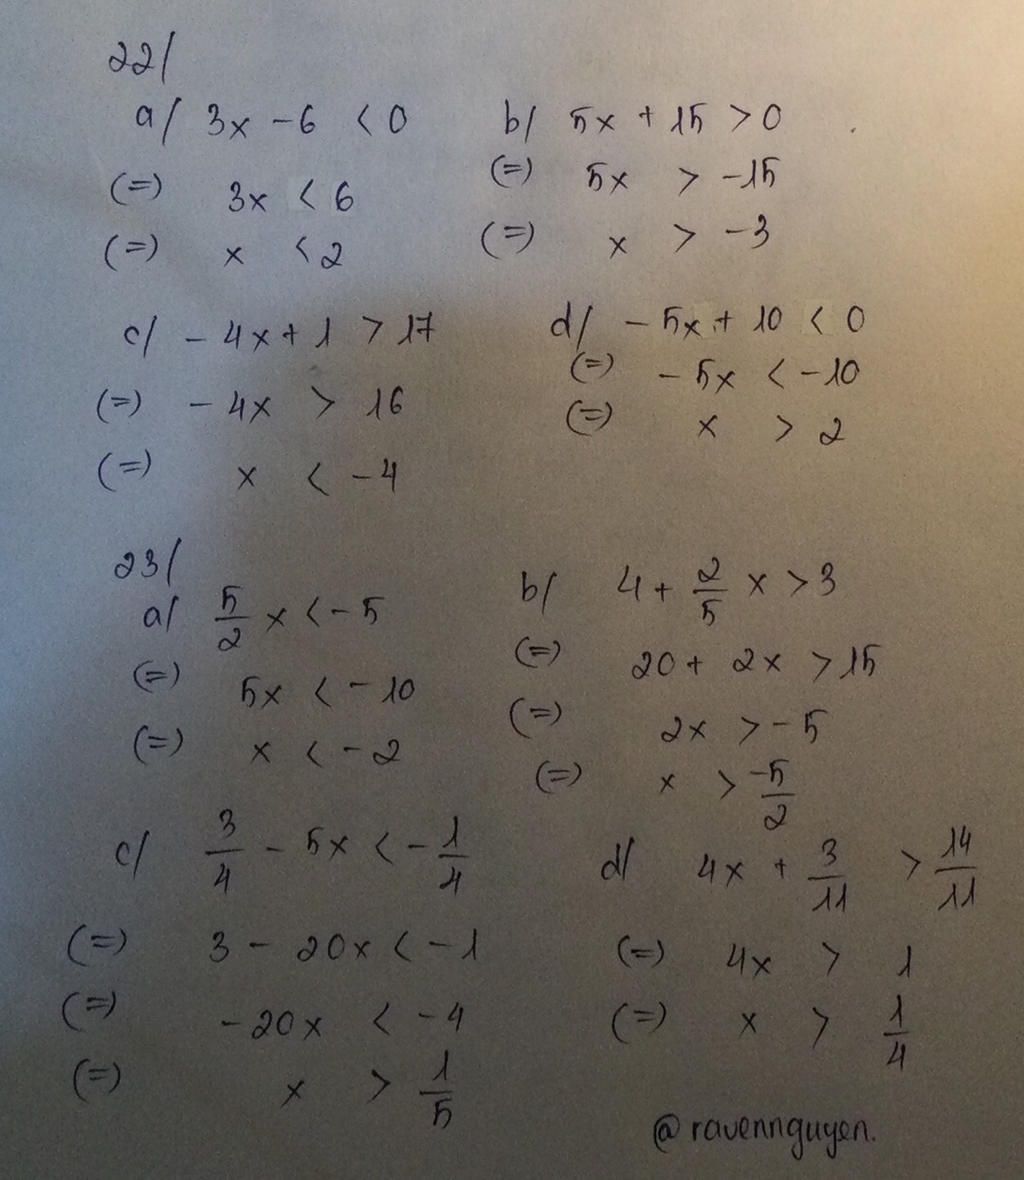 22/
a/ 3x - 6 < 0
(=) 3x < 6
(=) x < 2
b/ 5x + 15 > 0
(=) 5x > -15
(=) x > -3
c/ - 4x + 1 > 17
(=) - 4x > 16
(=) x < -4
d/ - 5x + 10 < 0
(=) - 5x < -10
(=) x > 2
23/
a/ 5/2 x < - 5
(=) 5x < - 10
(=) x < - 2
b/ 4 + 2/5 x > 3
(=) 20 + 2x > 15
(=) 2x > - 5
(=) x > -5/2
c/ 3/4 - 5x < - 1/4
(=) 3 - 20x < - 1
(=) -20x < -4
(=) x > 1/5
d/ 4x + 3/11 > 14/11
(=) 4x > 1
(=) x > 1/4
@ravennguyen.